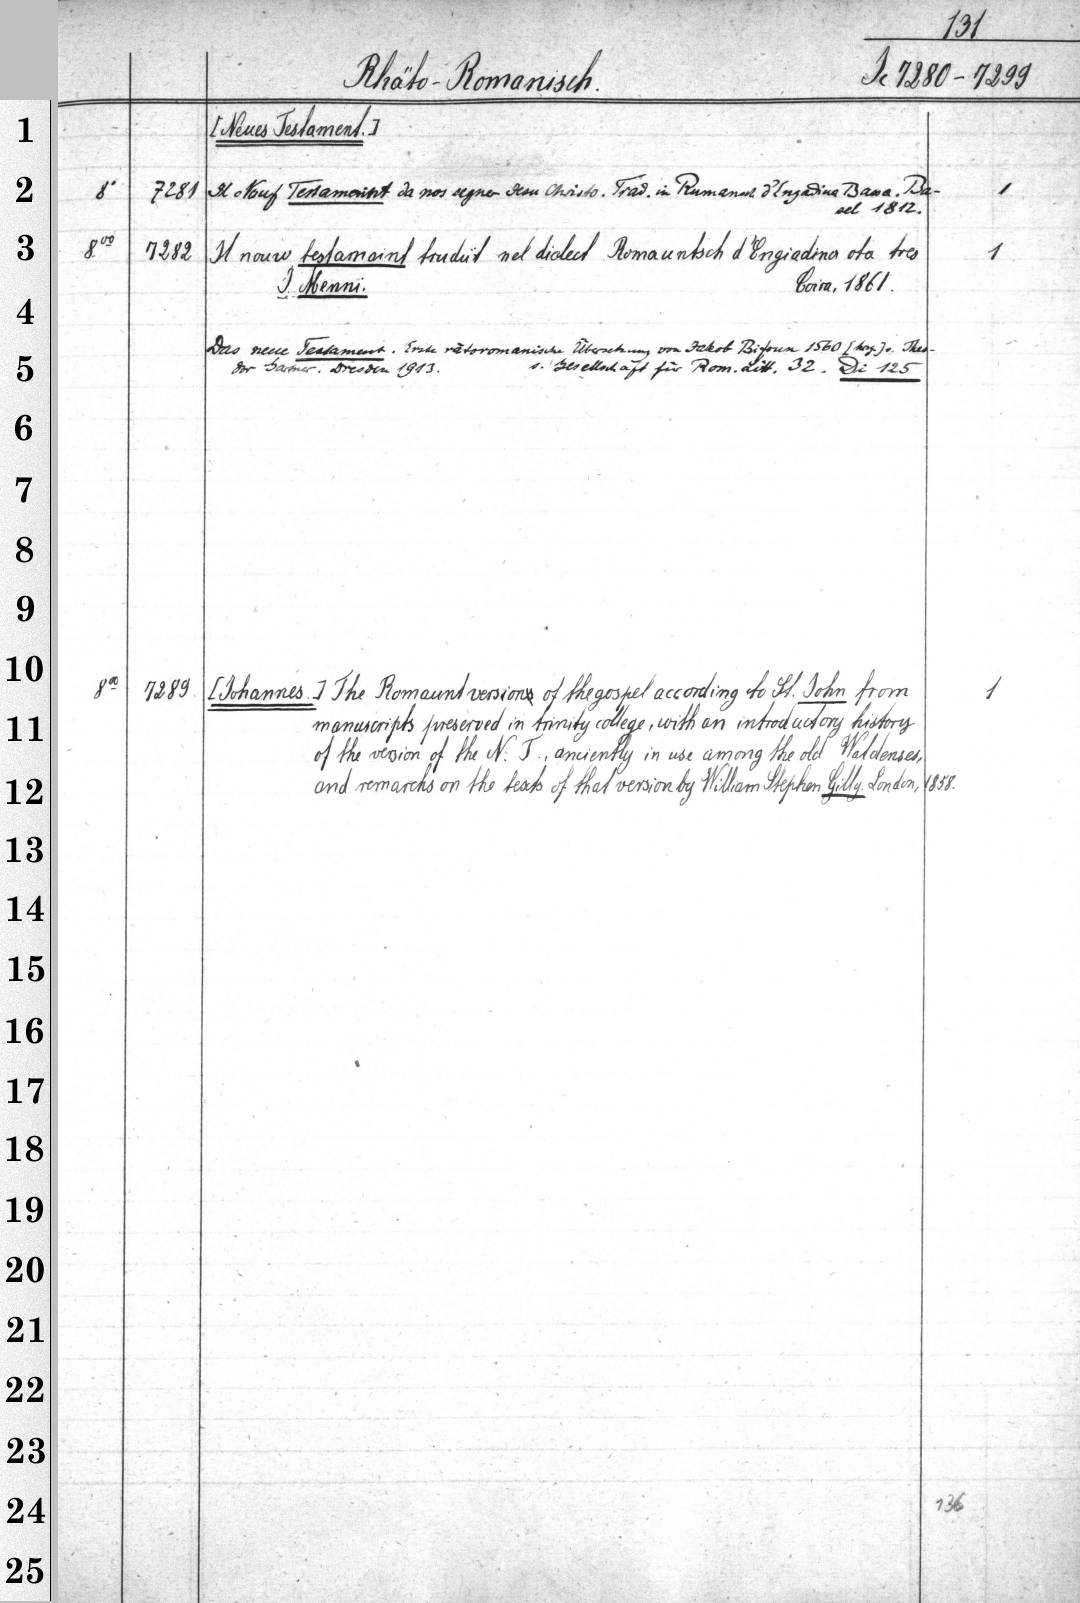 131
Rhäto-Romanisch. Ic 7280-7299
1
[Neues Testament.]
2
8° 7281 Il Nouf Testamaint da nos segner Jesu Christo. Trad. in Rumansch d'Engadina Bassa. Ba-
sel 1812. 1
3
8°° 7282 Il nouv testamaint traduït nel dialect Romauntsch d'Engiadina ota tres 1
J. Menni. Coira, 1861.
4
Das neue Testament. Erste rätoromanische Übersetzung von Jakob Bifrun 1560 [hrsg.] v. Theo-
5
dor Gartner. Dresden 1913. s. Gesellschaft für Rom. Litt. 32. Di 125
6
7
8
9
10
8°° 7289 [Johannes.] The Romaunt version of the gospel according to St. John from 1
11
manuscripts preserved in trinity college, with an introductory history
of the version of the N. T., anciently in use among the old Waldenses,
12
and remarks on the texts of that version by William Stephen Gilly. London, 1858.
13
14
15
16
17
18
19
20
21
22
23
24
136
25